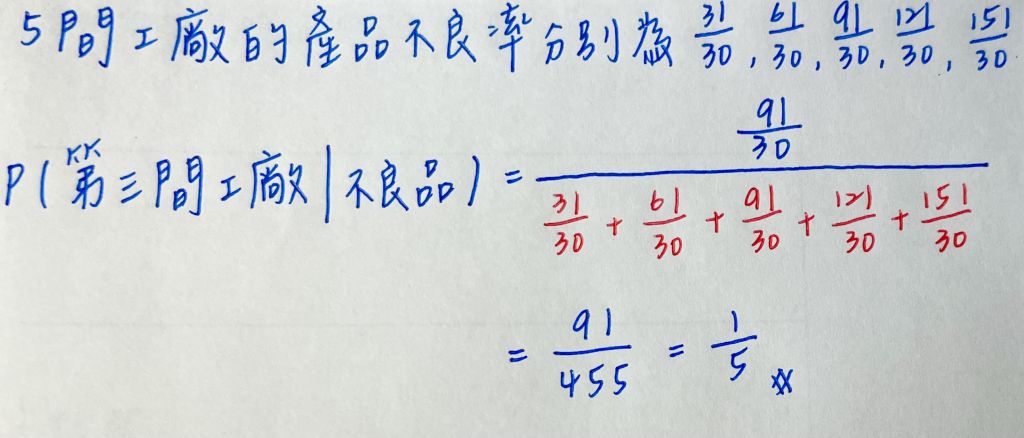 5間工廠的產品不良率分別為 31/30, 61/30, 91/30, 121/30, 151/30
P(第三間工廠|不良品) = (91/30) / (31/30 + 61/30 + 91/30 + 121/30 + 151/30)
= 91/455 = 1/5 ※